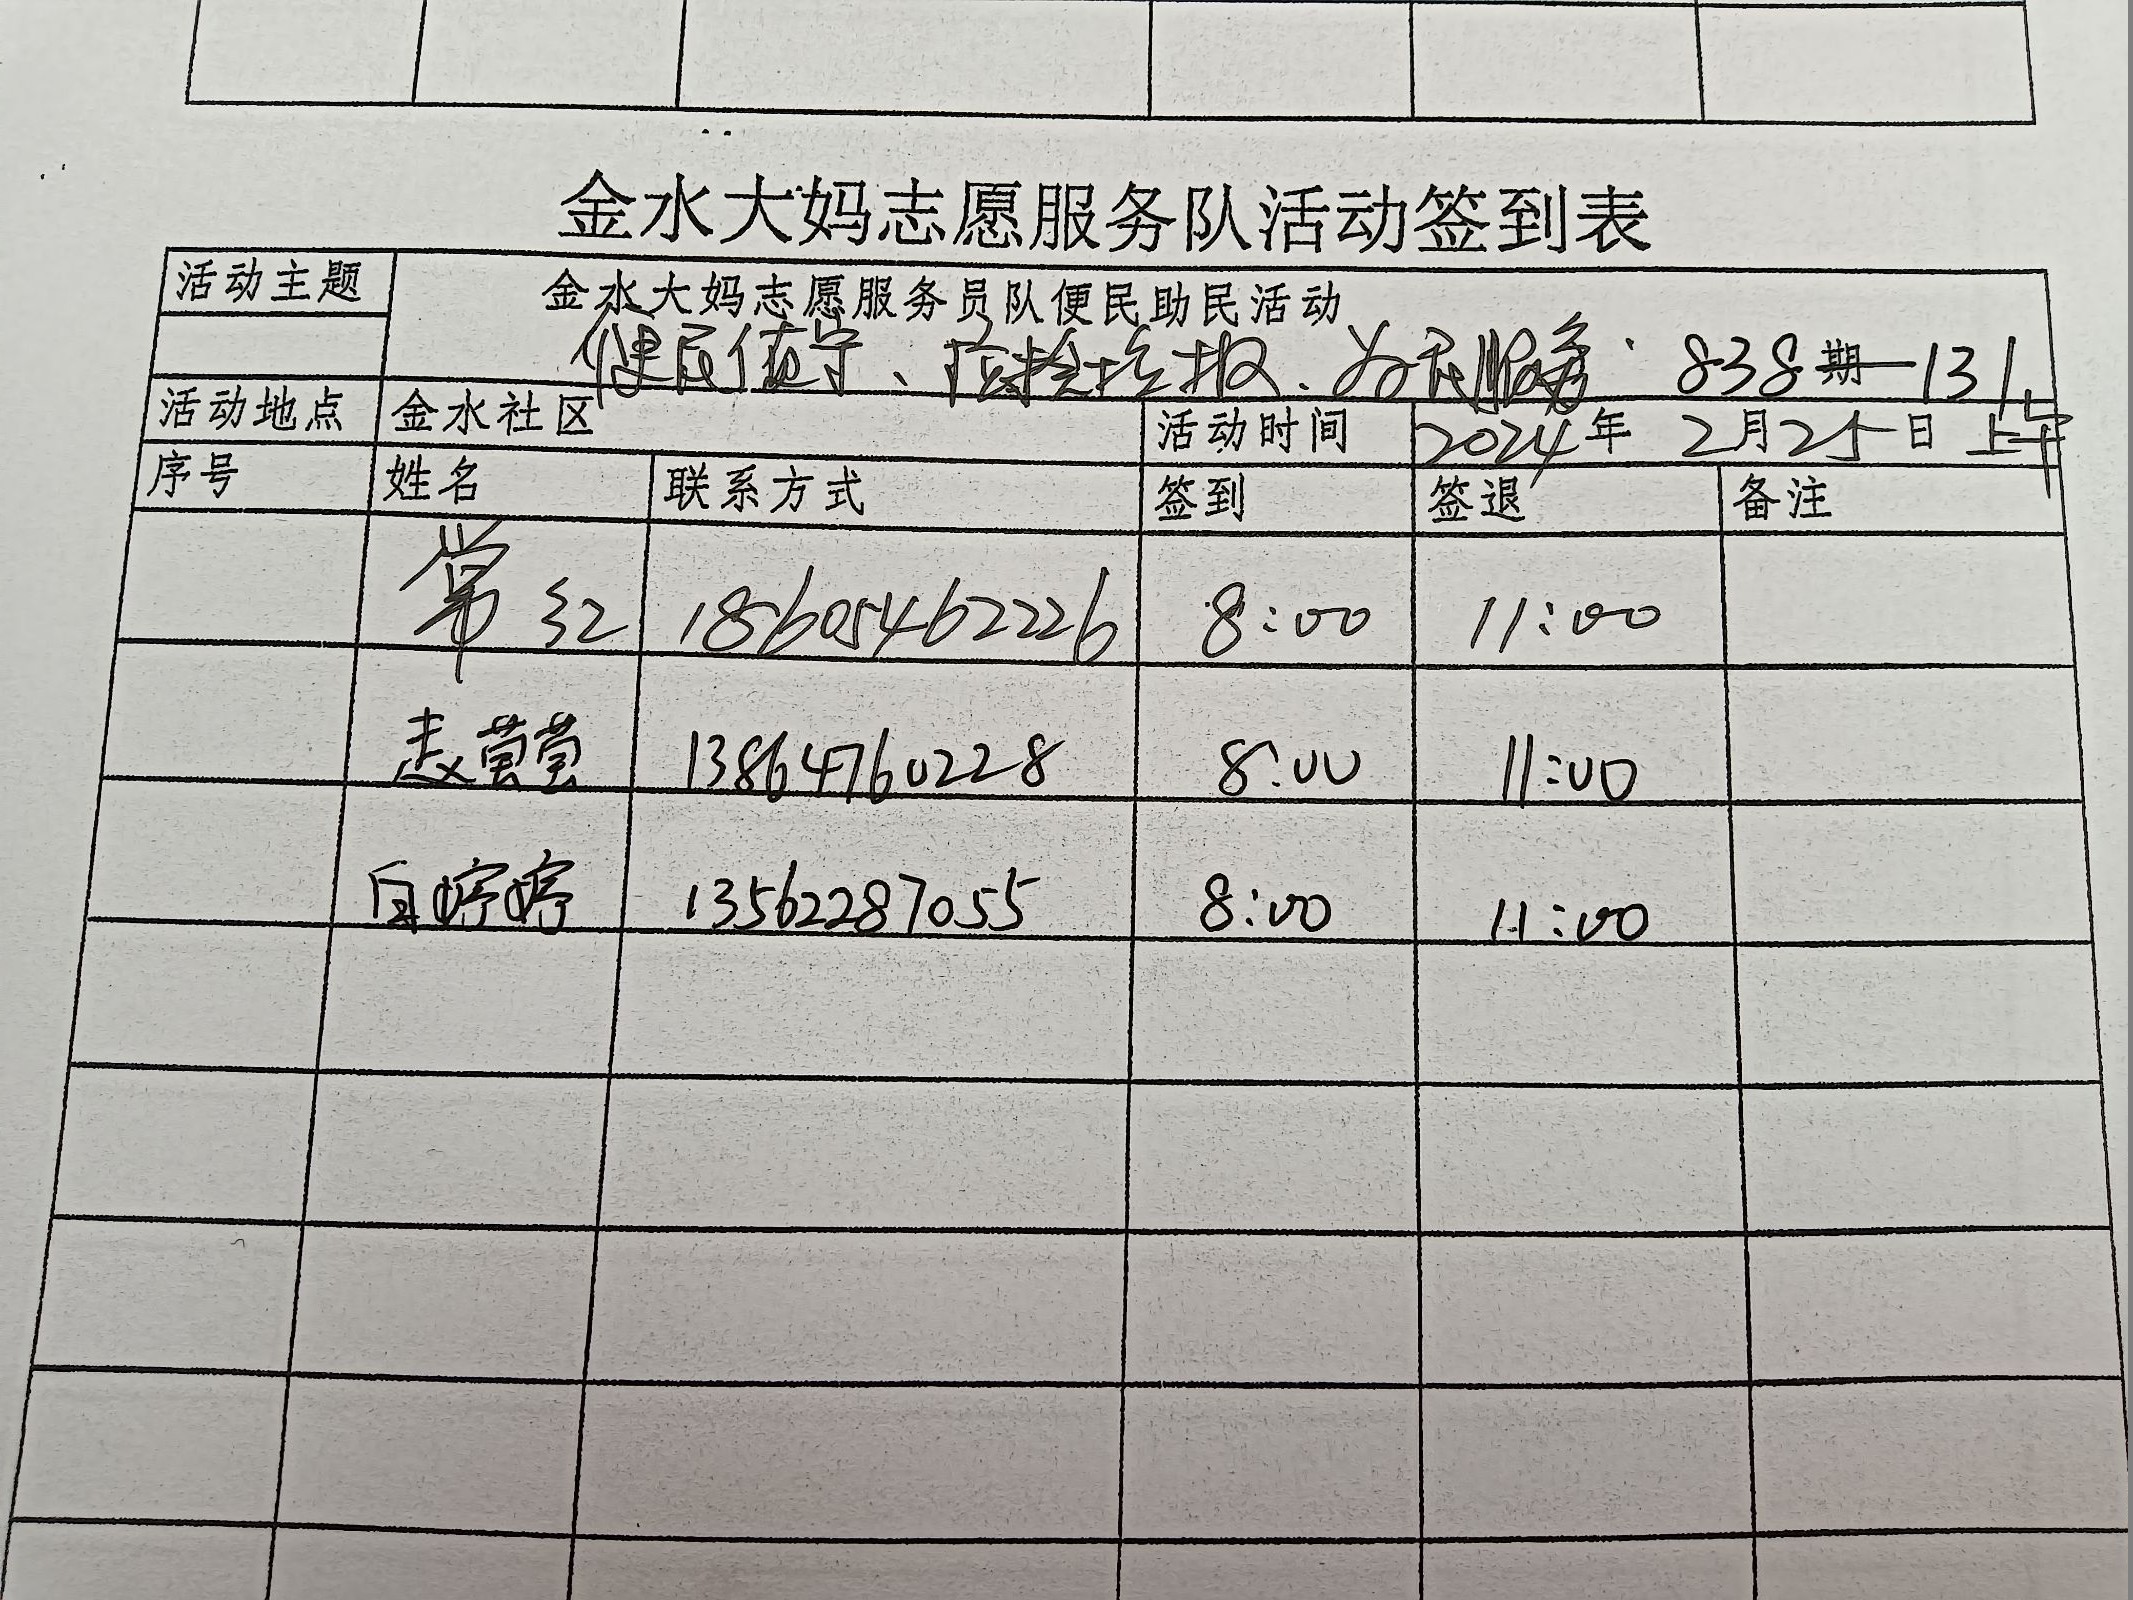 金水大妈志愿服务队活动签到表
活动主题 金水大妈志愿服务员队便民助民活动
便民值守、 为民服务 838期—131
活动地点 金水社区 活动时间 2024年 2月25日 上午
序号 姓名 联系方式 签到 签退 备注
常红 18605462226 8:00 11:00
袁莹莹 13864760228 8:00 11:00
婷婷 13562287055 8:00 11:00